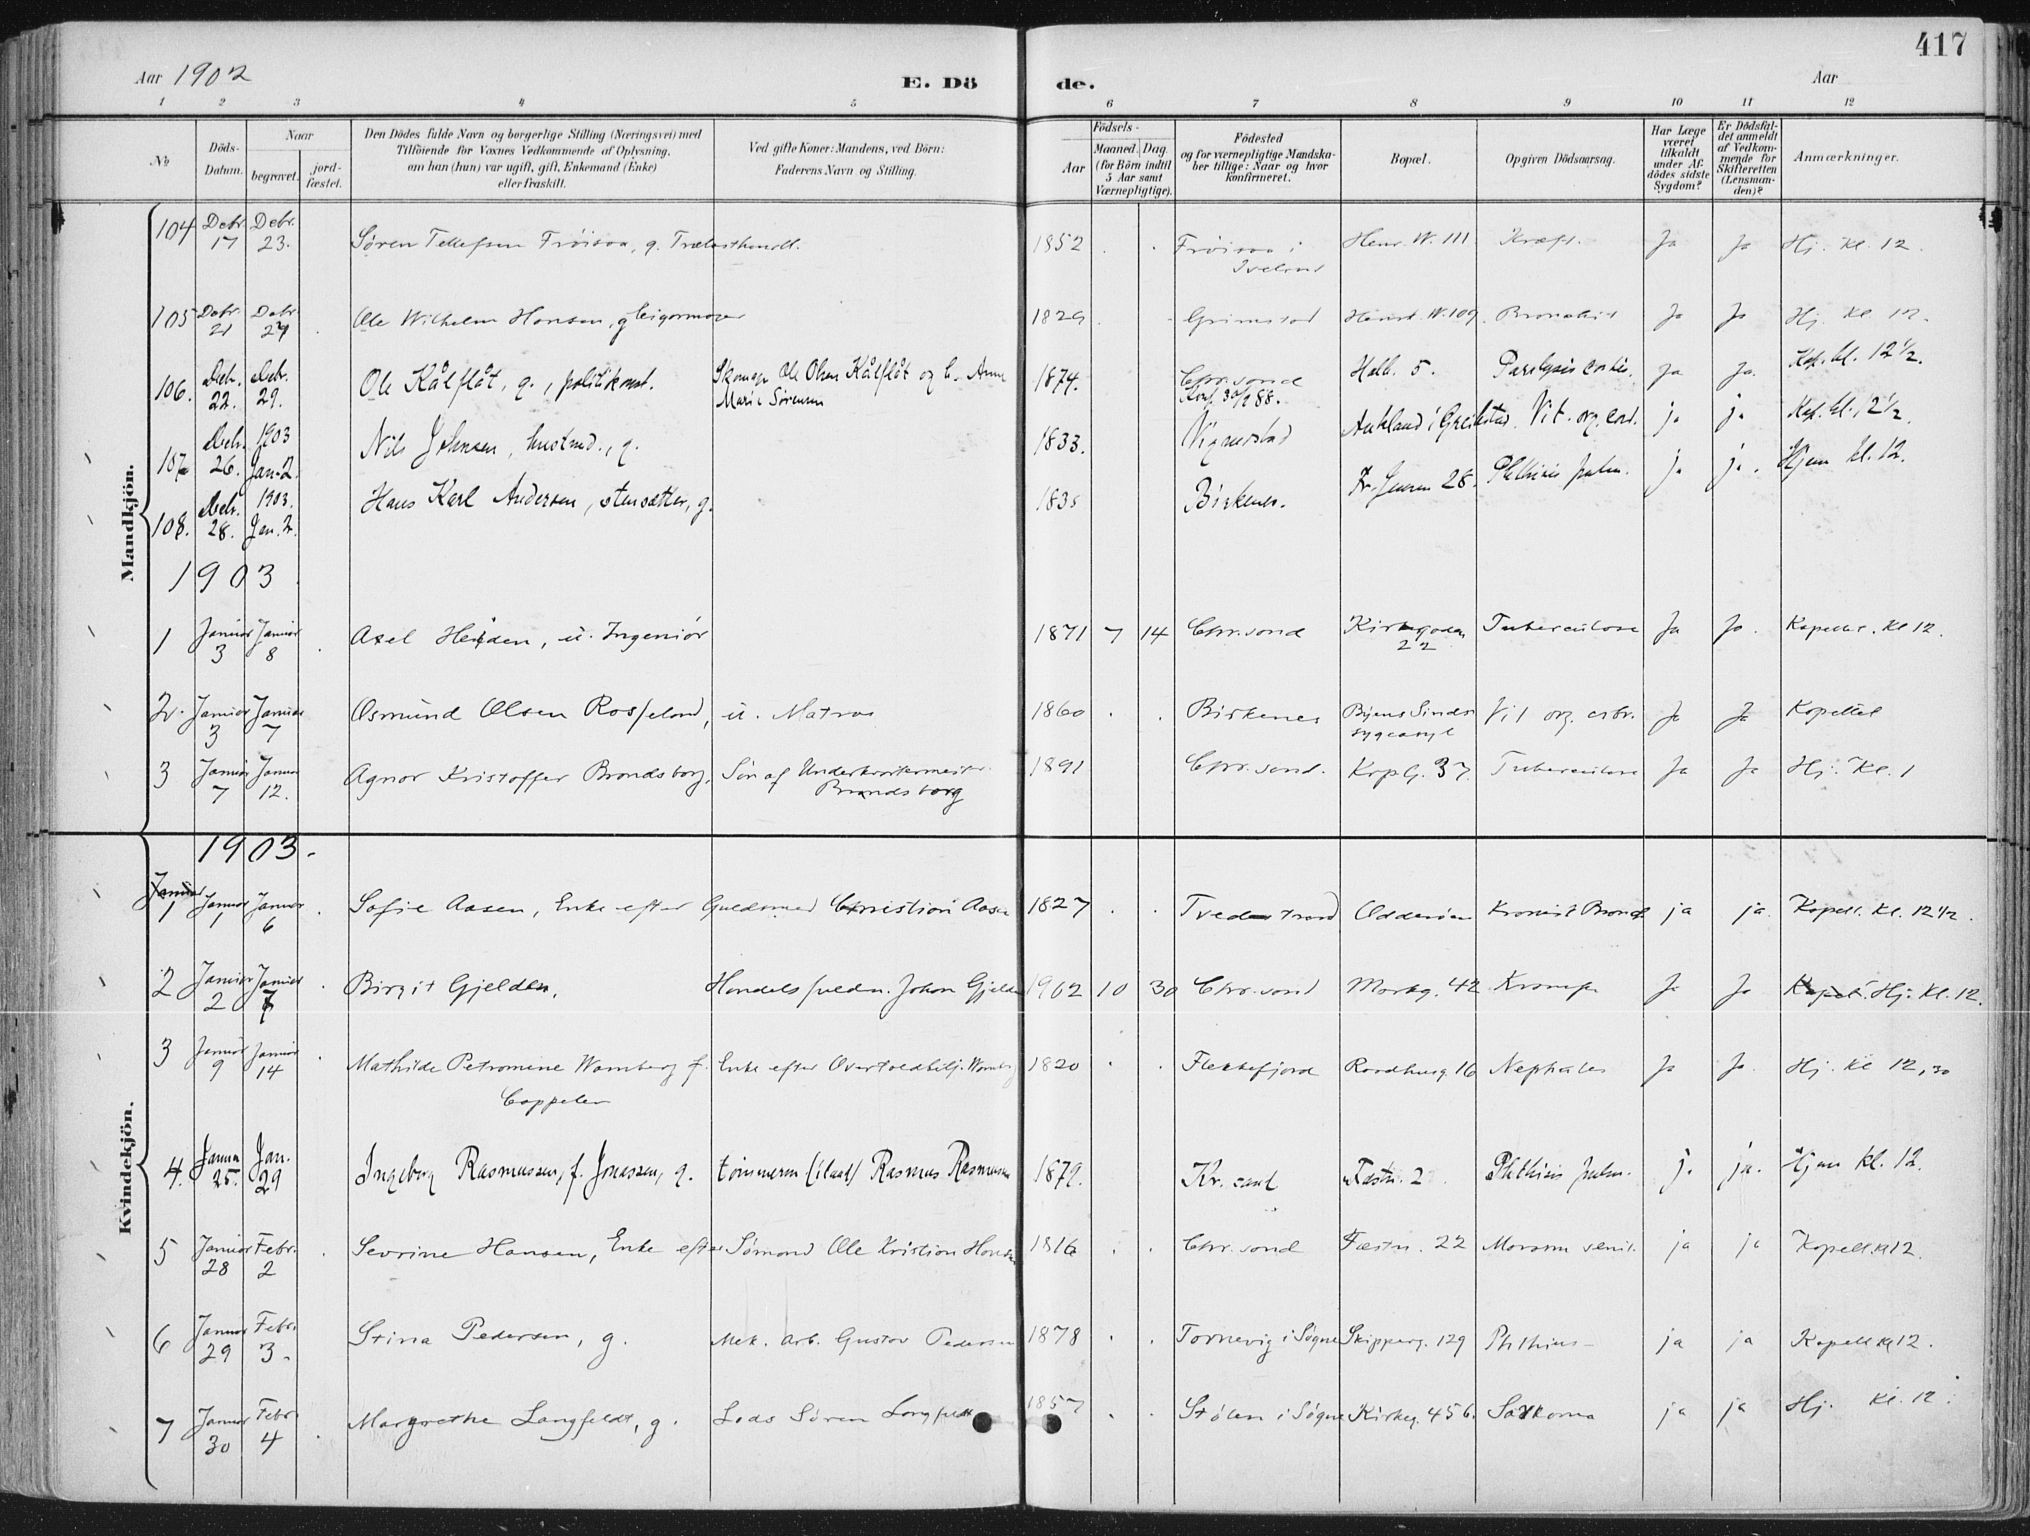 417
Aar 1902 E. Dö de. Aar
1 2 3 4 5 6 7 8 9 10 11 12
No
Döds-
Datum.
Naar
begravet.
jord-
fæstet.
Den Dödes fulde Navn og borgerlige Stilling (Næringsvei) med
Tilföiende for Voxnes Vedkommende af Oplysning,
om han (hun) var ugift, gift, Enkemand (Enke)
eller fraskilt.
Ved gifte Koner: Mandens, ved Börn:
Faderens Navn og Stilling.
Födsels-
Aar
Maaned. Dag.
(for Börn indtil
5 Aar samt
Værnepligtige).
Födested
og for værnepligtige Mandska-
ber tillige: Naar og hvor
konfirmeret.
Bopæl.
Opgiven Dödsaarsag.
Har Læge
været
tilkaldt
under Af-
dödes sidste
Sygdom?
Er Dödsfal-
det anmeldt
af Vedkom-
mende for
Skifteretten
(Lensman-
den)?
Anmærkninger.
Mandkjön.
104 Debr. 17 Debr. 23. Søren Tellefsen Frøisaa, g. Trælasthandl. 1852 Frøisaa i Iveland Henr. W. 111. Kræft. Ja Ja Hj. Kl. 12.
105 Debr. 21 Debr. 29 Ole Wilhelm Hansen, g 1829 Grimstad W. 109. Bronchit Ja Ja Hj. Kl 12.
106. Deb. 22. Deb. 29. Ole Kålflåt, g., politikonst. Skomag. Ole Olsen Kålflåt og h. Anne Marie Sørensen 1874. Chr.sand Konf. 88. Holb. 5. Paralysis cordis. ja ja. Kap. kl. 12 1/2.
107 Deb. 26. 1903 Jan. 2. Nils Johnsen, husmd., g. 1833. Vigmostad i Greipstad. Vit. org. cord. ja ja Kap. kl. 12 1/2.
108. Deb. 28. 1903. Jan. 2. Hans Karl Andersen, stensætter, g. 1835 Birkenes. Fr. Jensen 28. Phthisis pulm. ja ja. Hjem kl. 12.
1903
1 Januar 3 Januar 8 Axel Heiden, u. Ingeniør 1871 7 14 Chr.sand Kirkegaden 22 Tuberculose Ja Ja. Kapellet. Kl 12.
2. Januar 3 Januar 7 Osmund Olsen Rosseland, u. Matros 1860 Birkenes Byens Sinds- sygeasyl Vit org. cordis. Ja Ja Kapellet
3 Januar 7 Januar 12. Agnar Kristoffer Brandsborg, Søn af Underkvartermester Brandsborg 1891 Chr.sand. Krpl. G. 37. Tuberculose Ja Ja Hj. Kl. 1
Kvindekjön.
1903.
Januar
1 Januar 1 Januar 6 Sofie Aasen, Enke efter Guldsmed Christian Aasen 1827 Tvedestrand Odderøen Kronisk Bronch. ja ja. Kapell. Kl. 12 1/2.
2 Januar 2 Januar 7 Birgit Gjelden, Handelsfuldm. Johan Gjelden 1902 10 30 Chr.sand Markg. 42 Krampe Ja Ja Kapell. Hj. Kl. 12.
3 Januar 9 Januar 14 Mathilde Petromine Wamberg f. Cappelen Enke efter Overtoldbetj. Wamberg 1820 Flekkefjord Raadhusg. 16 Ja Ja. Hj. Kl 12,30
4. Januar 25. Jan. 29 Ingeborg Rasmussen, f. Jonassen, g. tømmerm. Rasmus Rasmussen 1879. Kr.sand Fæstn. 2 Phthisis pulm. j. ja. Hjem kl. 12.
5 Januar 28 Febr. 2 Sevrine Hansen, Enke efter Sømand Ole Kristian Hansen 1816 Chr.sand Fæstn. 22 Marasm. senil. ja ja Kapell. Kl 12.
6 Januar 29 Febr. 3. Stina Pedersen, g. Mek. Arb. Gustav Pedersen 1878 Tornevig i Søgne Skipperg. 129 Phthisis ja ja Kapell Kl 12.
7 Januar 30 Febr. 4 Margrethe Langfeldt, g. Lods Søren Langfeldt 1857 Stølen i Søgne Kirkeg. 456. Sarkoma ja ja Hj. Kl. 12.